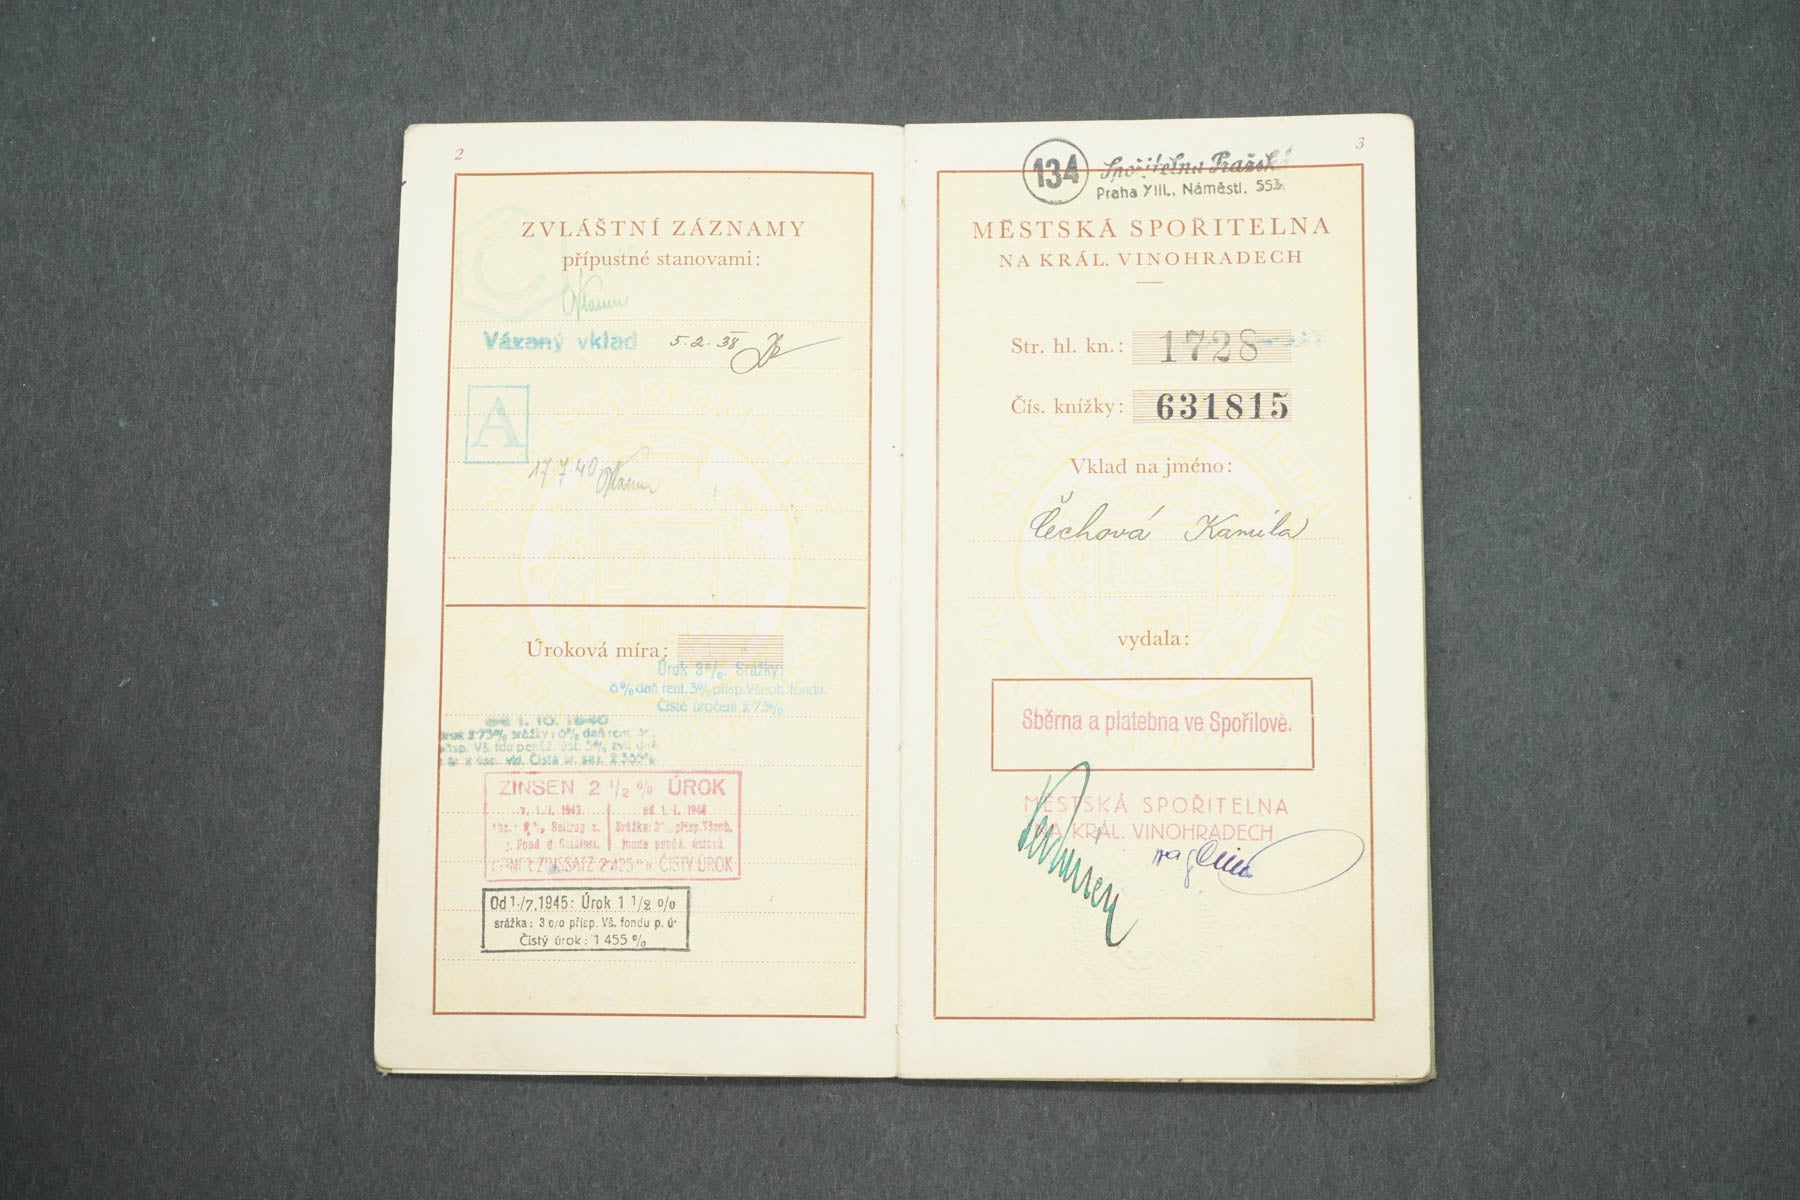 2
ZVLÁŠTNÍ ZÁZNAMY
přípustné stanovami:
C
Vázaný vklad 5.2.38
A
17.7.40
Úroková míra:
Úrok 3%. Srážky:
6% daň rent. 3% přísp. Všeob. fondu.
Čisté úročení 2.73%
1.10.1940
2.75% srážky: 6% daň rent.
Vš. fdu peněž. úst. 5% zvl.
ZINSEN 2 1/2 % ÚROK
v. 1./1. 1943. od 1./1. 1943
Beitrag z. Srážka: 3% přísp. Všeob.
Fond d. Geldinst. fondu peněž. ústavů
ZINSSATZ 2.425% ČISTÝ ÚROK
Od 1./7.1945: Úrok 1 1/2 %
srážka: 3 o/o přísp. Vš. fondu p. ú.
Čistý úrok: 1 455 %
3
134 Spořitelna Pražská
Praha XIII., Náměstí. 553.
MĚSTSKÁ SPOŘITELNA
NA KRÁL. VINOHRADECH
Str. hl. kn.: 1728
Čís. knížky: 631815
Vklad na jméno:
Čechová Kamila
vydala:
Sběrna a platebna ve Spořilově.
MĚSTSKÁ SPOŘITELNA
NA KRÁL. VINOHRADECH